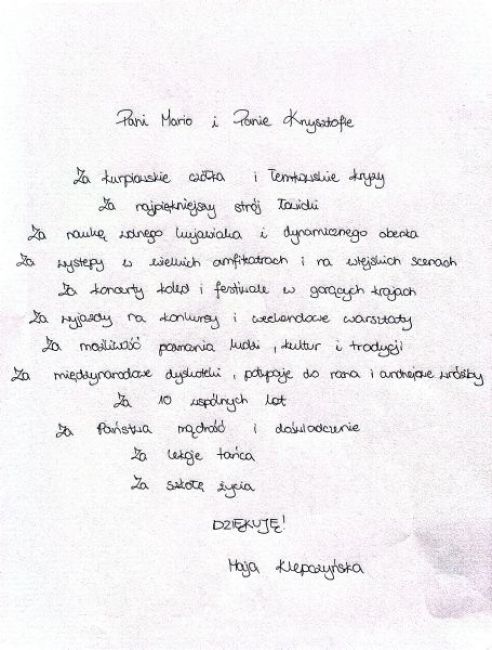 Pani Mario i Panie Krzysztofie
Za kurpiowskie czółka i łemkowskie kryzy
Za najpiękniejszy strój łowicki
Za naukę wolnego kujawiaka i dynamicznego oberka
Za występy w wielkich amfiteatrach i na wiejskich scenach
Za koncerty kolęd i festiwale w gorących krajach
Za wyjazdy na konkursy i weekendowe warsztaty
Za możliwość poznania ludzi, kultur i tradycji
Za międzynarodowe dyskoteki, potupaje do rana i andrzejkowe wróżby
Za 10 wspólnych lat
Za Państwa mądrość i doświadczenie
Za lekcje tańca
Za szkołę życia
DZIĘKUJĘ!
Maja Klepczyńska